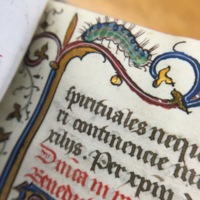 spirituales nequ
ri continencie m
xilijs. Per xp̄m
D̄nica in m
Benedic